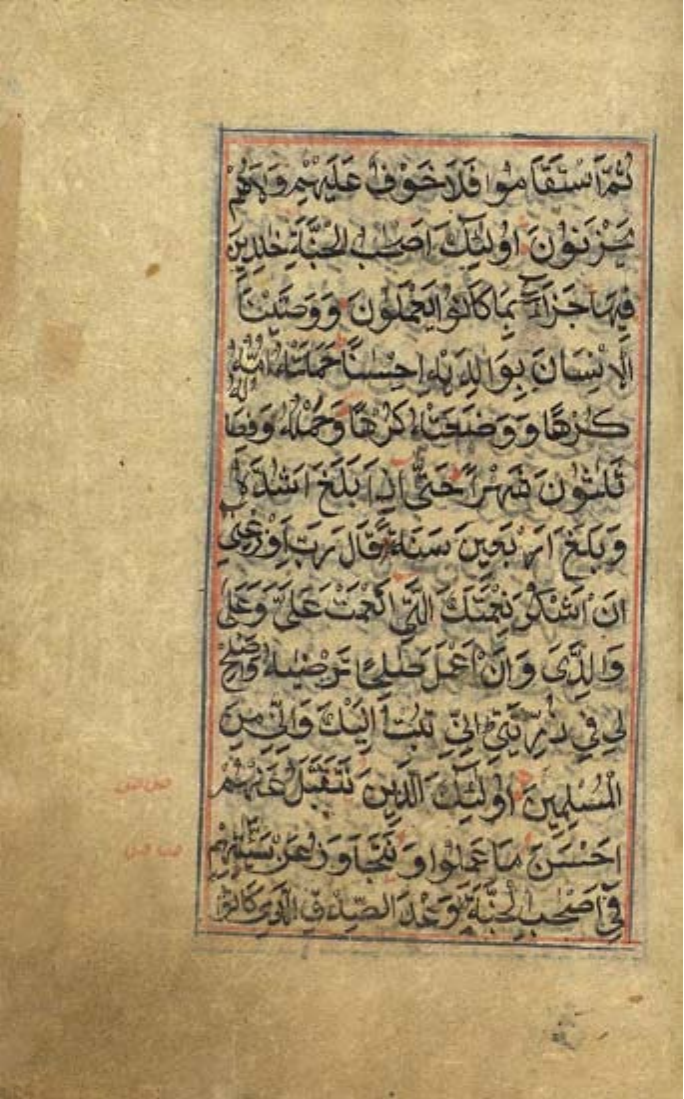 ثُمَّ اسْتَقَامُوا فَلَا خَوْفٌ عَلَيْهِمْ وَلَا هُمْ
يَحْزَنُونَ اُولٰئِكَ اَصْحٰبُ الْجَنَّةِ خٰلِدِينَ
فِيهَا جَزَاءً بِمَا كَانُوا يَعْمَلُونَ وَوَصَّيْنَا
الْاِنْسَانَ بِوَالِدَيْهِ اِحْسٰنًا حَمَلَتْهُ اُمُّهُ
كُرْهًا وَوَضَعَتْهُ كُرْهًا وَحَمْلُهُ وَفِصَالُهُ
ثَلٰثُونَ شَهْرًا حَتَّى اِذَا بَلَغَ اَشُدَّهُ
وَبَلَغَ اَرْبَعِينَ سَنَةً قَالَ رَبِّ اَوْزِعْنِى
اَنْ اَشْكُرَ نِعْمَتَكَ الَّتِى اَنْعَمْتَ عَلَىَّ وَعَلَى
وَالِدَىَّ وَاَنْ اَعْمَلَ صٰلِحًا تَرْضٰيهُ وَاَصْلِحْ
لِى فِى ذُرِّيَّتِى اِنِّى تُبْتُ اِلَيْكَ وَاِنِّى مِنَ
الْمُسْلِمِينَ اُولٰئِكَ الَّذِينَ نَتَقَبَّلُ عَنْهُمْ
اَحْسَنَ مَا عَمِلُوا وَنَتَجَاوَزُ عَنْ سَيِّاٰتِهِمْ
فِى اَصْحٰبِ الْجَنَّةِ وَعْدَ الصِّدْقِ الَّذِى كَانُوا